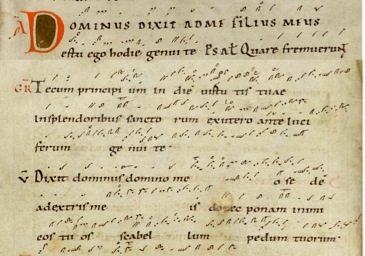 A DOMINUS DIXIT AD ME FILIUS MEUS
es tu ego hodie genui te Psal Quare fremuerunt
GR Tecum principi um in die uirtu tis tuae
Insplendoribus sancto rum exutero ante luci
ferum ge nui te
V Dixit dominus domino me o se de
adextris me is donec ponam inimi
cos tu os scabel lum pedum tuorum